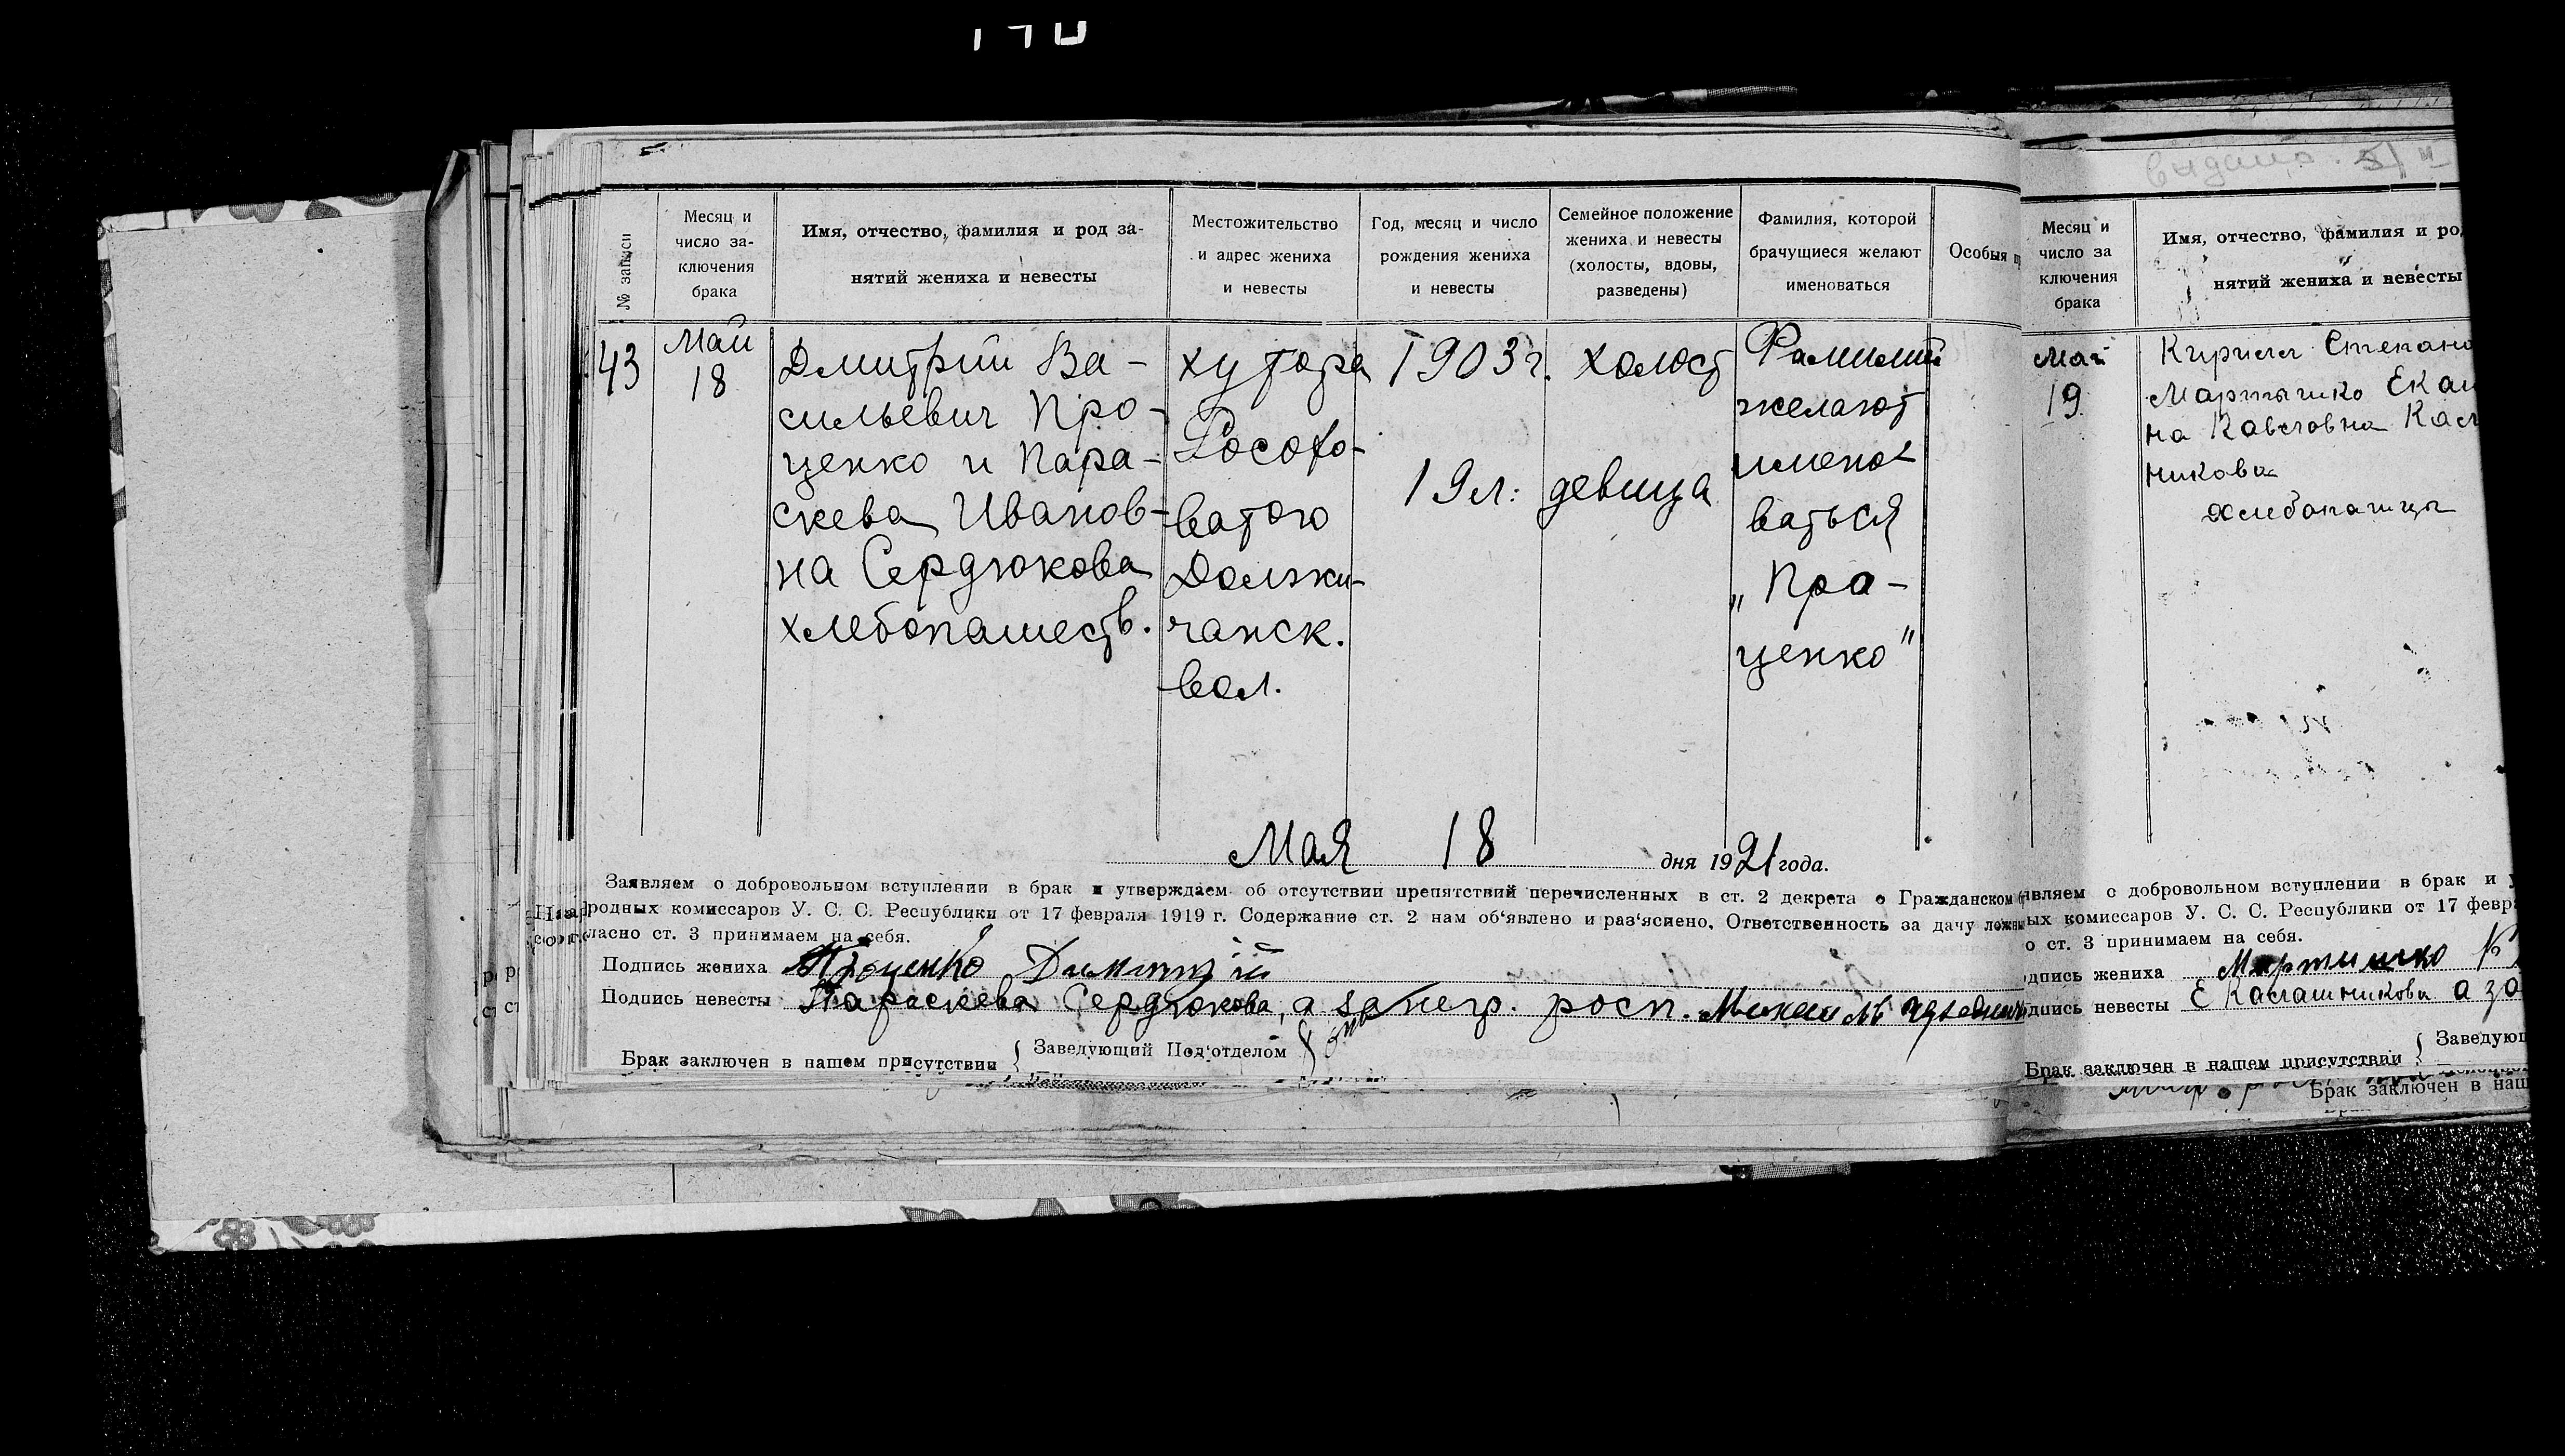 выдано
№ записи
Месяц и
число за-
ключения
брака
Имя, отчество, фамилия и род за-
нятий жениха и невесты
Местожительство
и адрес жениха
и невесты
Год, месяц и число
рождения жениха
и невесты
Семейное положение
жениха и невесты
(холосты, вдовы,
разведены)
Фамилия, которой
брачущиеся желают
именоваться
Особыя
43
Май
18
Дмитрий Ва-
сильевич Про-
ценко и Пара-
скева Иванов-
на Сердюкова
хлебопашеств.
хутора
Росохо-
ватого
Должи-
чанск.
вол.
1903 г.
19 л.
холост
девица
Фамилий
желают
имено-
ваться
„Про-
ценко"
Мая 18 дня 1921 года.
Заявляем о добровольном вступлении в брак и утверждаем об отсутствии препятствий перечисленных в ст. 2 декрета о Гражданском
родных комиссаров У. С. С. Республики от 17 февраля 1919 г. Содержание ст. 2 нам об'явлено и раз'яснено, Ответственность за дачу
согласно ст. 3 принимаем на себя.
Подпись жениха Проценко Димитрий
Подпись невесты Параскева Сердюкова, а за негр. росп.
Брак заключен в нашем присутствии { Заведующий Под'отделом
Месяц и
число за
ключения
брака
Имя, отчество, фамилия и ро
нятий жениха и невесты
Май
19
Кирилл Степано
Мартышко Ека
на Савеловна
никова
хлебопашцы
являем о добровольном вступлении в брак и у
ых комиссаров У. С. С. Республики от 17 февр
о ст. 3 принимаем на себя.
дпись жениха Мартышко К
дпись невесты Е Калашникова а за
Брак заключен в нашем присутствии { Заведую
Брак заключен в наш